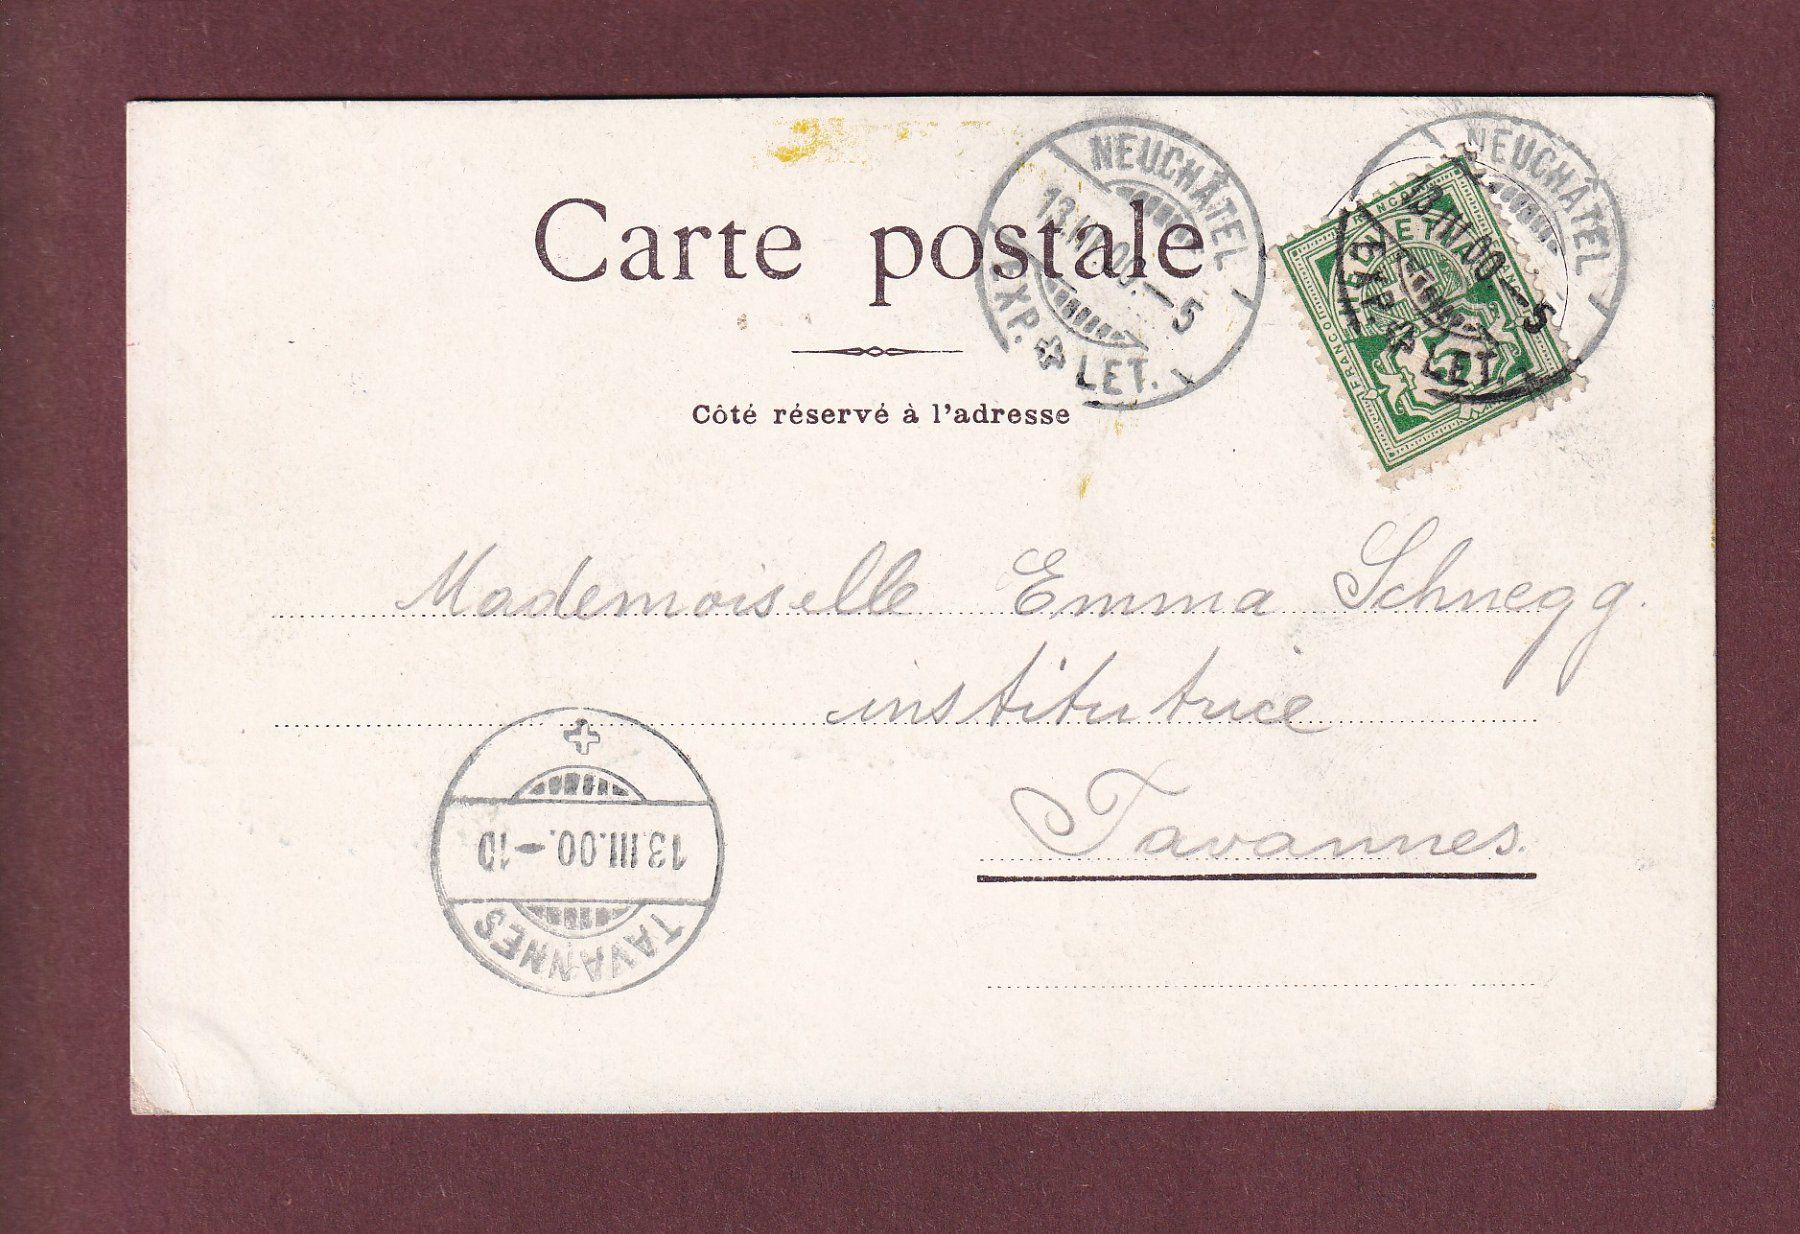 Carte postale
Côté réservé à l'adresse
NEUCHÂTEL
13.III.00.–5
EXP. LET.
NEUCHÂTEL
13.III.00.–5
EXP. LET.
HELVETIA
FRANCO
FRANCO
Mademoiselle Emma Schnegg.
institutrice
Tavannes.
13.III.00.–10
TAVANNES